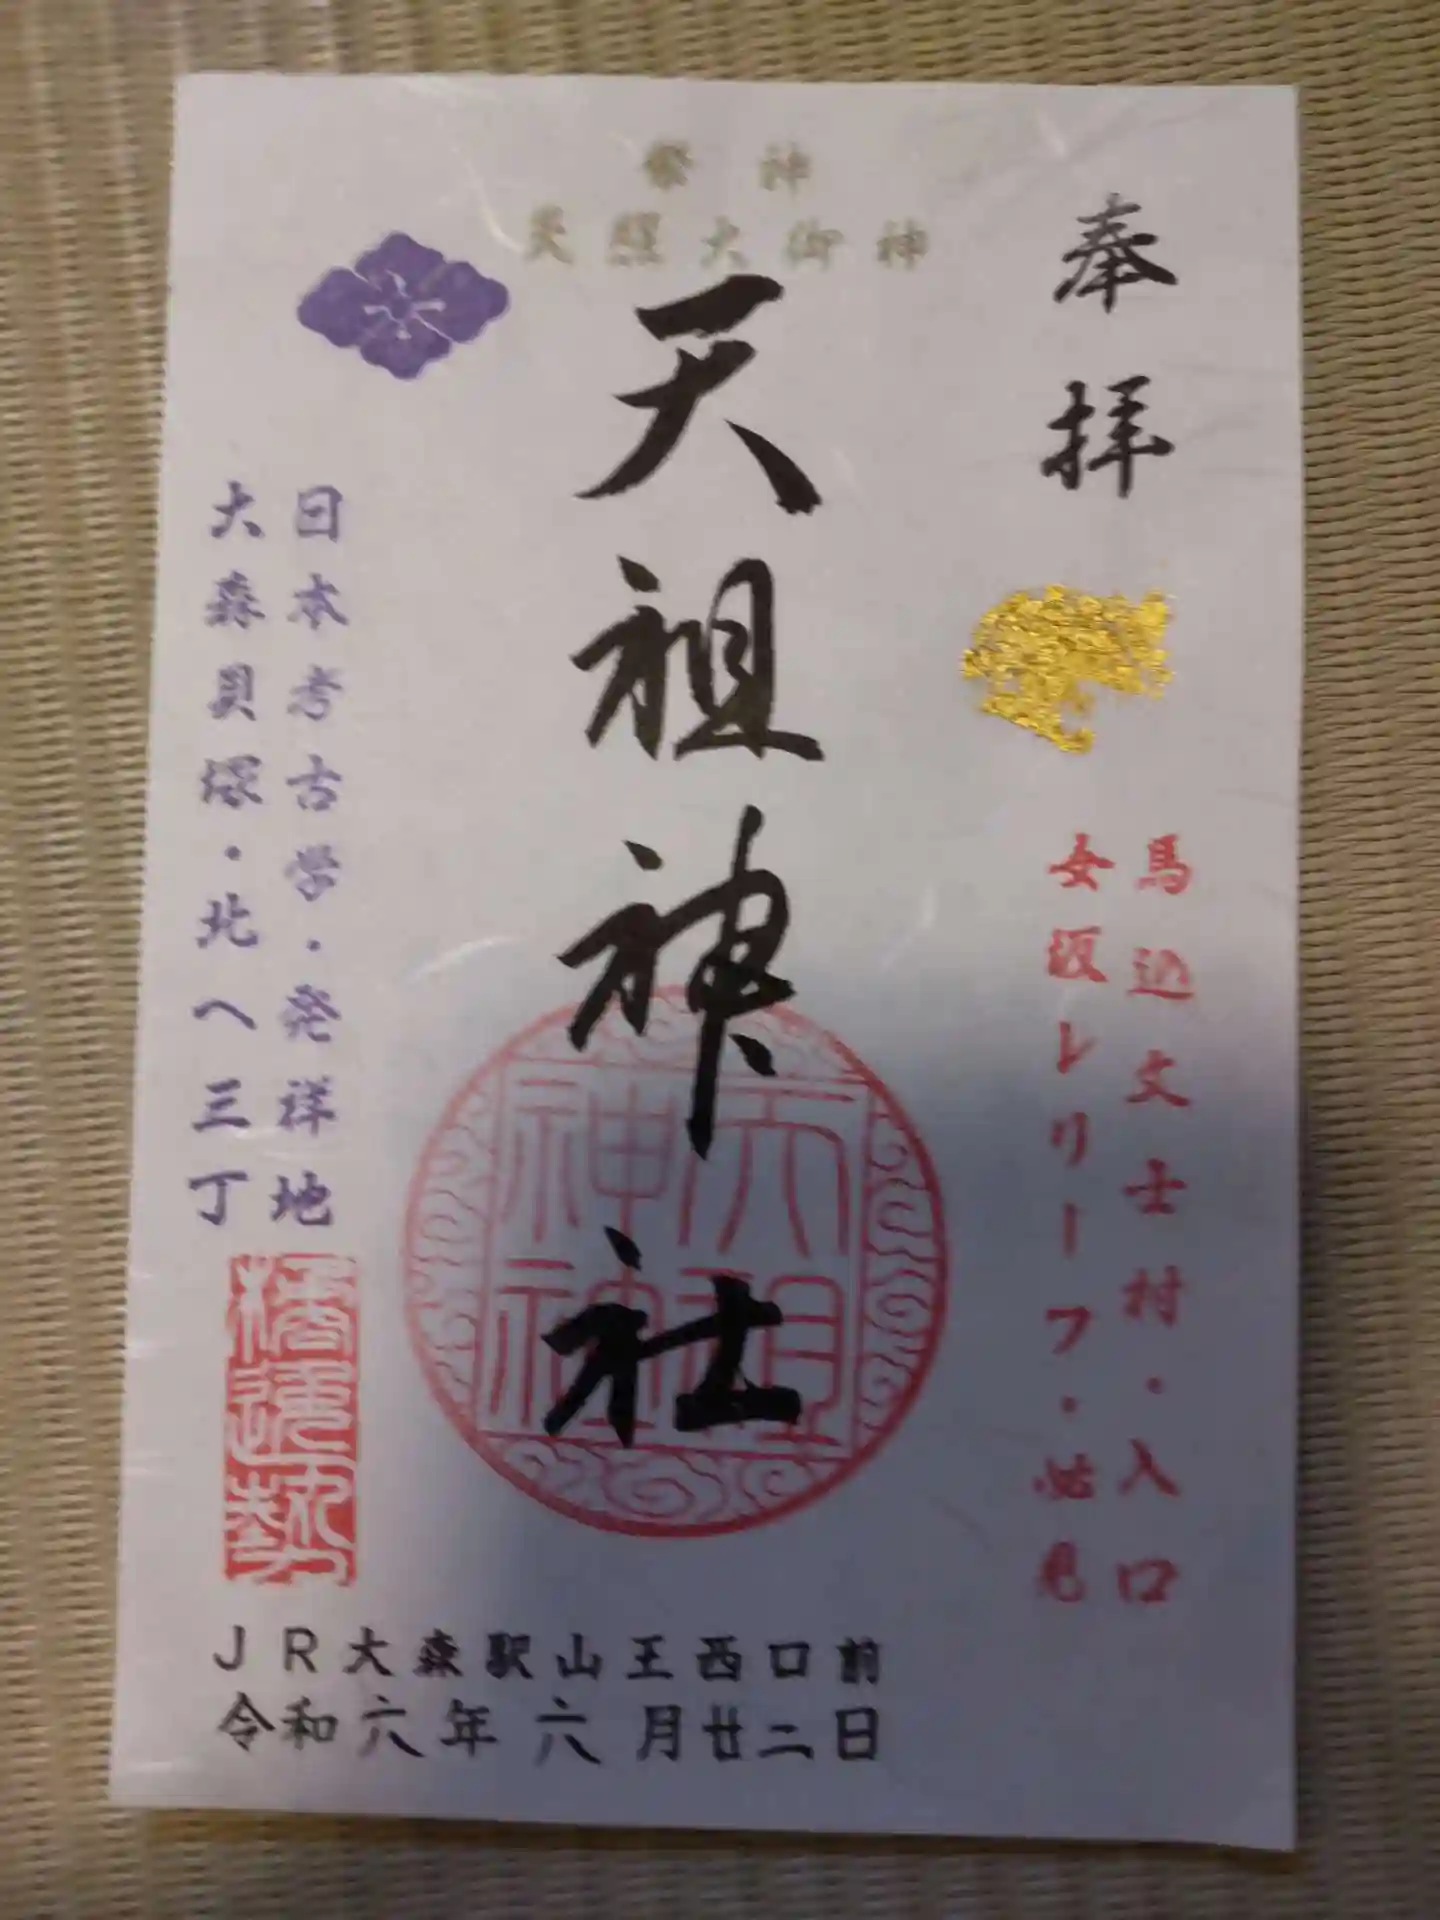 祭神
天照大御神
奉拝
馬込文士村・入口
女坂レリーフ・必見
天祖神社
天祖神社
日本考古学・発祥地
大森貝塚・北へ三丁
JR大森駅山王西口前
令和六年六月廿二日